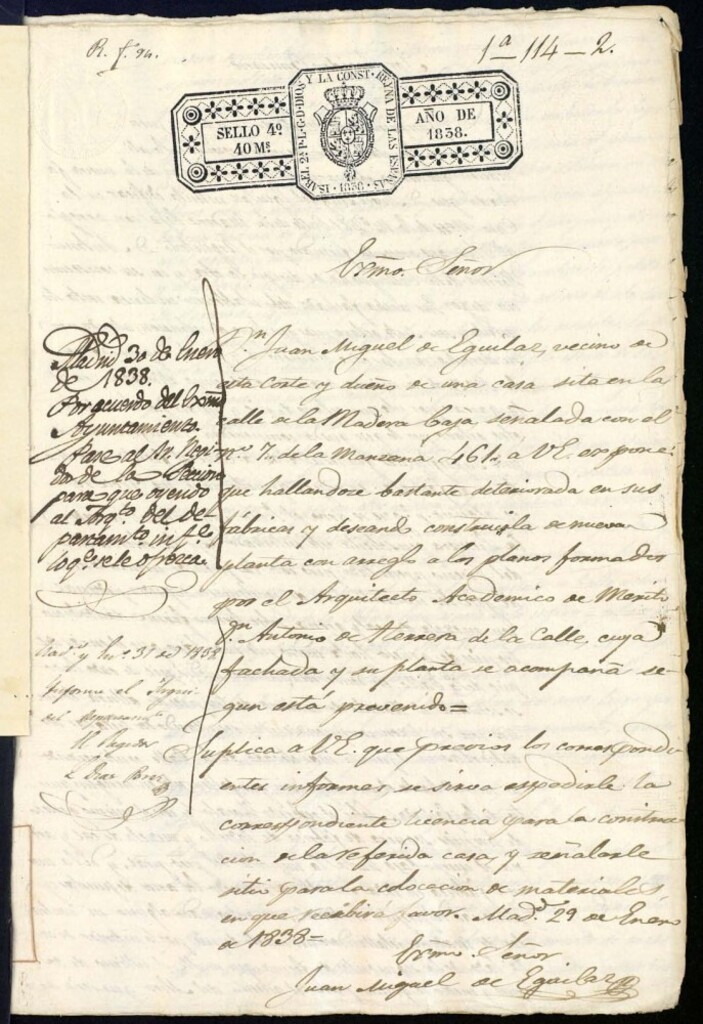 R. f. 94.
1ª 114-2.
SELLO 4º
40 Ms
ISABEL 2ª P.L.G.D.DIOS Y LA CONST. REYNA DE LAS ESPAÑAS
· 1838 ·
AÑO DE
1838.
Exmo. Señor.
Madrid 30 de Enero
de 1838.
Por acuerdo del Exmo
Ayuntamiento
Pase al Sr. Regi-
dor de la Seccion
para que oyendo
al Arqto. del de-
partamto. infe.
lo qe. se le ofrezca.
Madd. y En.o 31 de 1838
Informe el Arqui.
del
El Regidor
Dn. Juan Miguel de Eguilaz, vecino de
esta Corte y dueño de una casa sita en la
calle de la Madera baja señalada con el
nº 7. de la Manzana 461. a VE. expone:
que hallandose bastante deteriorada en sus
fábricas y deseando construirla de nueva
planta con arreglo a los planos formados
por el Arquitecto Academico de Merito
Dn. Antonio de Herrera de la Calle, cuya
fachada y su planta se acompaña se-
gun está prevenido=
Suplica a V.E. que previos los correspondi
entes informes se sirva expedirle la
correspondiente licencia para la construc-
cion de la referida casa, y señalarle
sitio para la colocacion de materiales
en que recibirá favor. Madd. 29 de Enero
de 1838=
Exmo. Señor.
Juan Miguel de Eguilaz